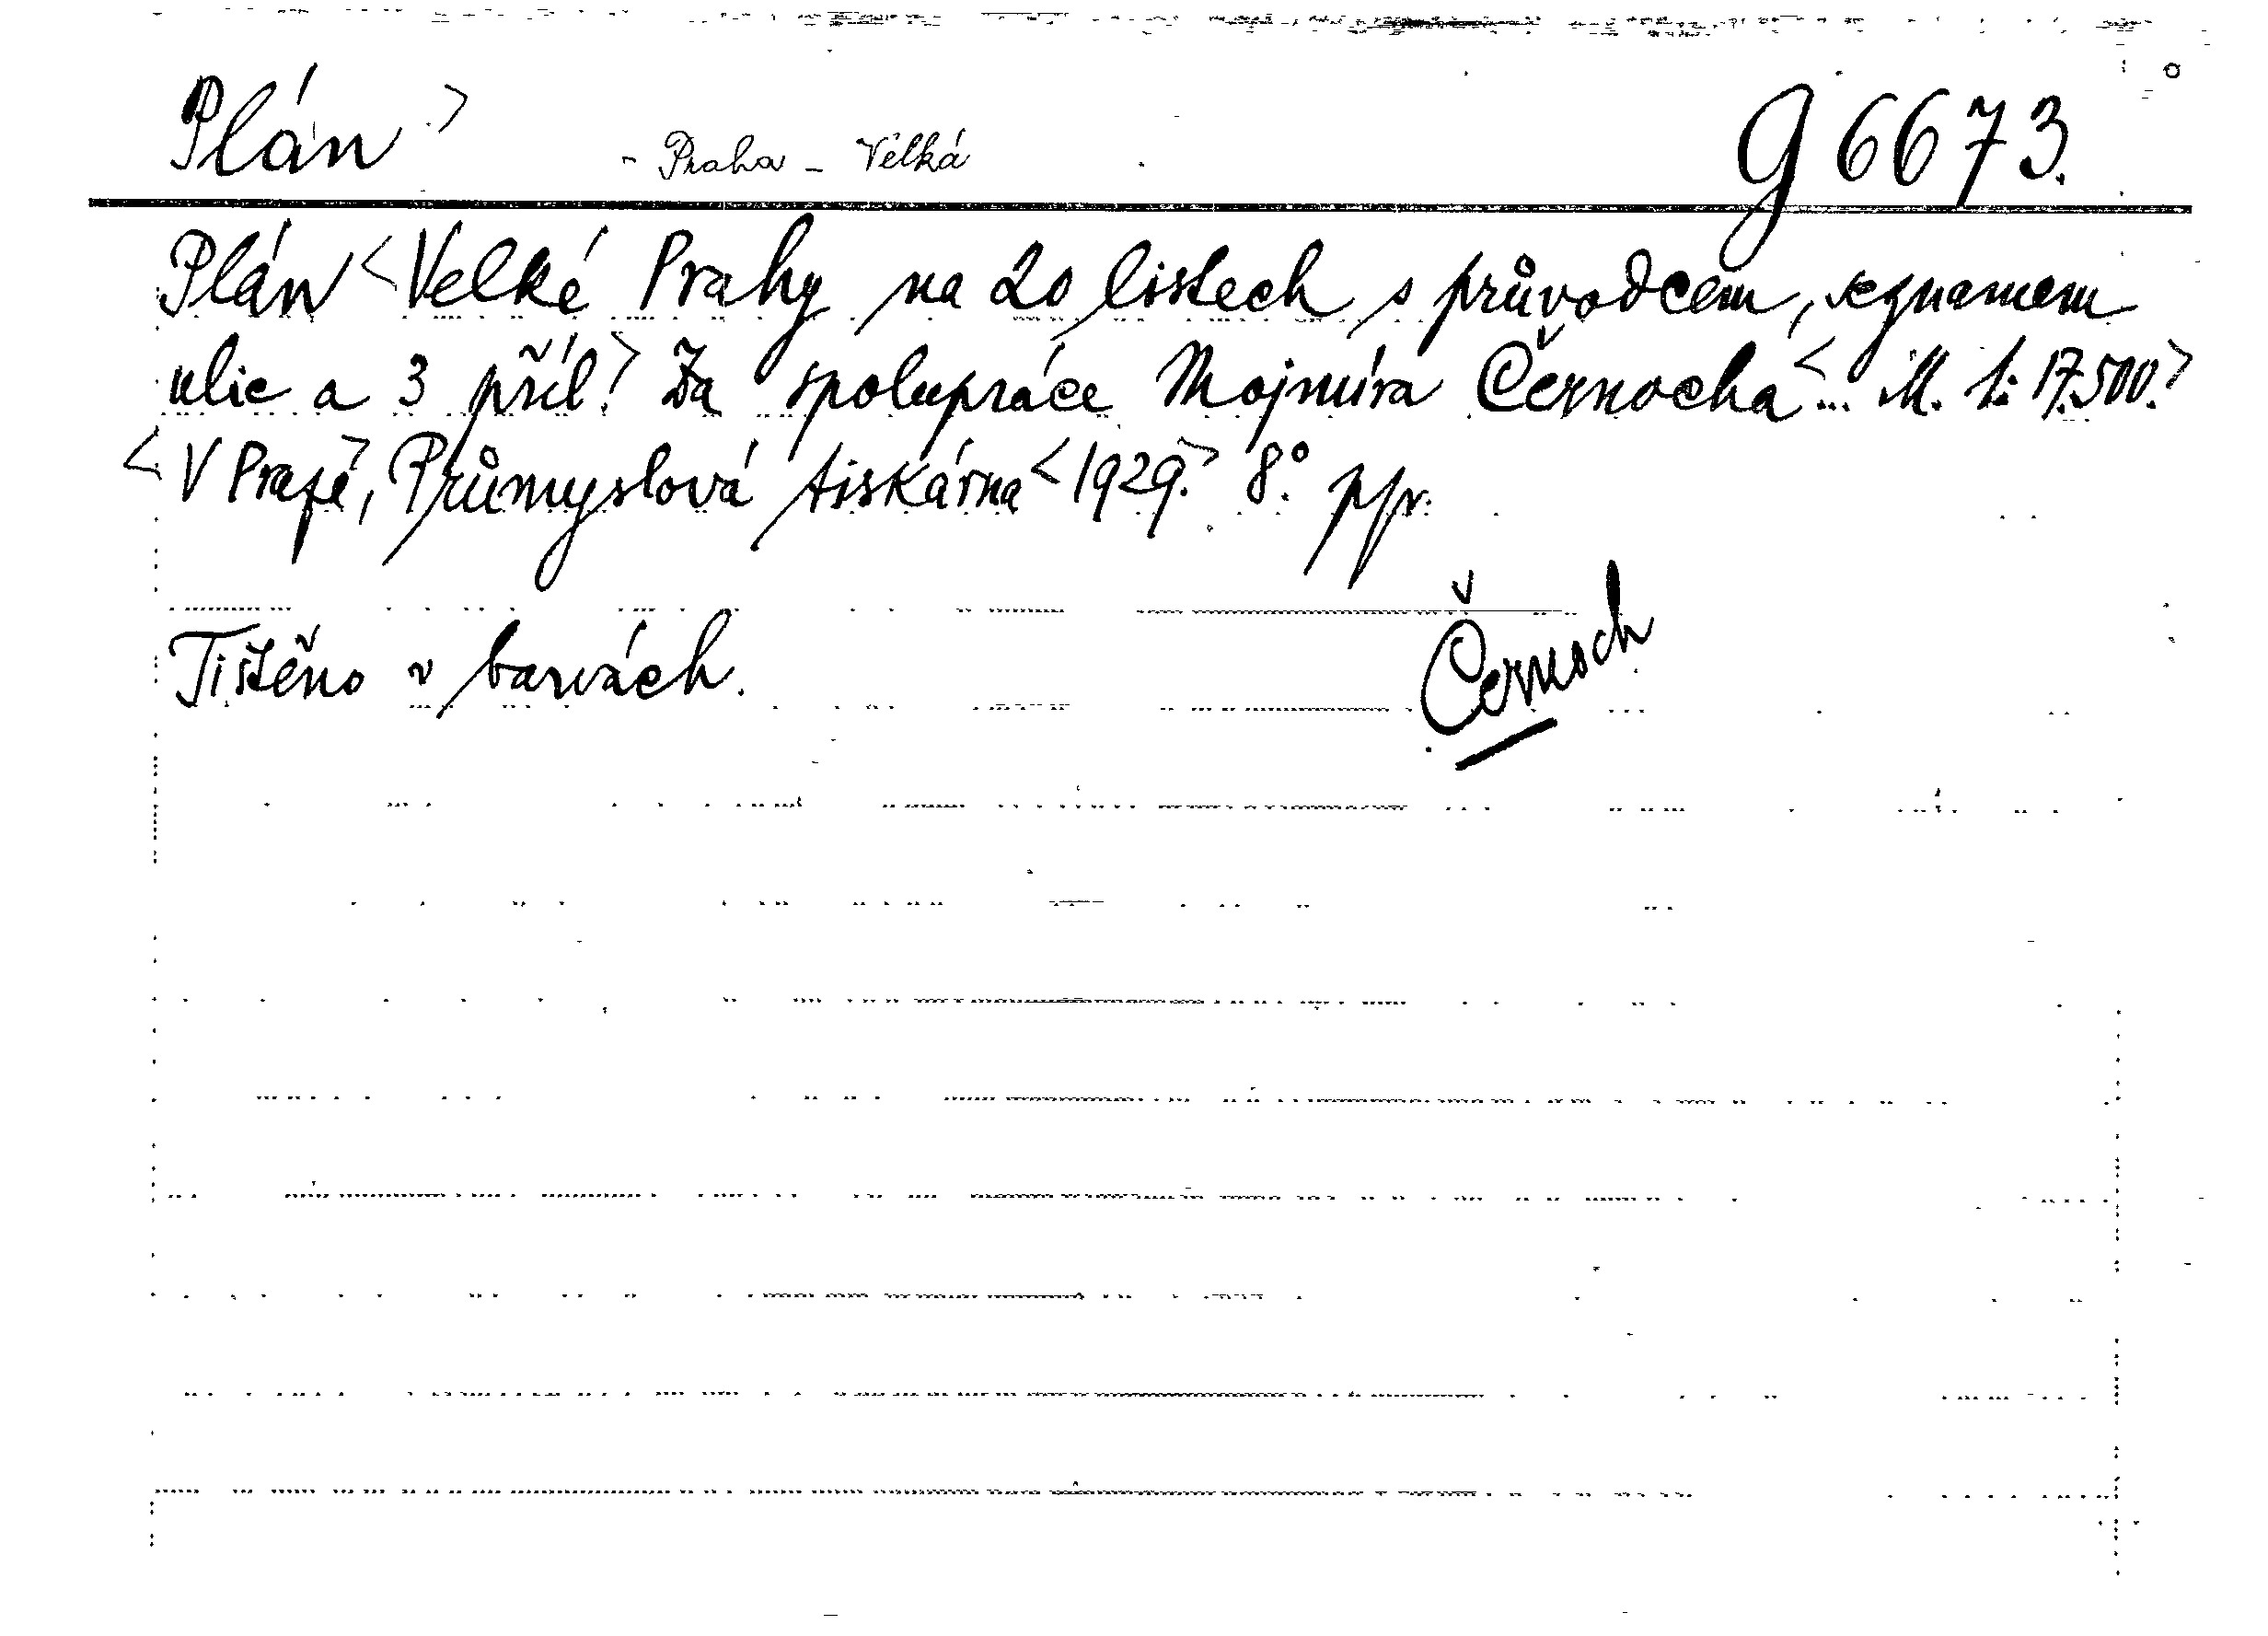 Plán> - Praha - Velká g 6673.
Plán <Velké Prahy na 20 listech s průvodcem, seznamem
ulic a 3 příl.> Za spolupráce Mojmíra Černocha <... M. 1: 17.500.>
<V Praze>, Průmyslová tiskárna <1929.> 8°.
Tištěno v barvách.
Černoch